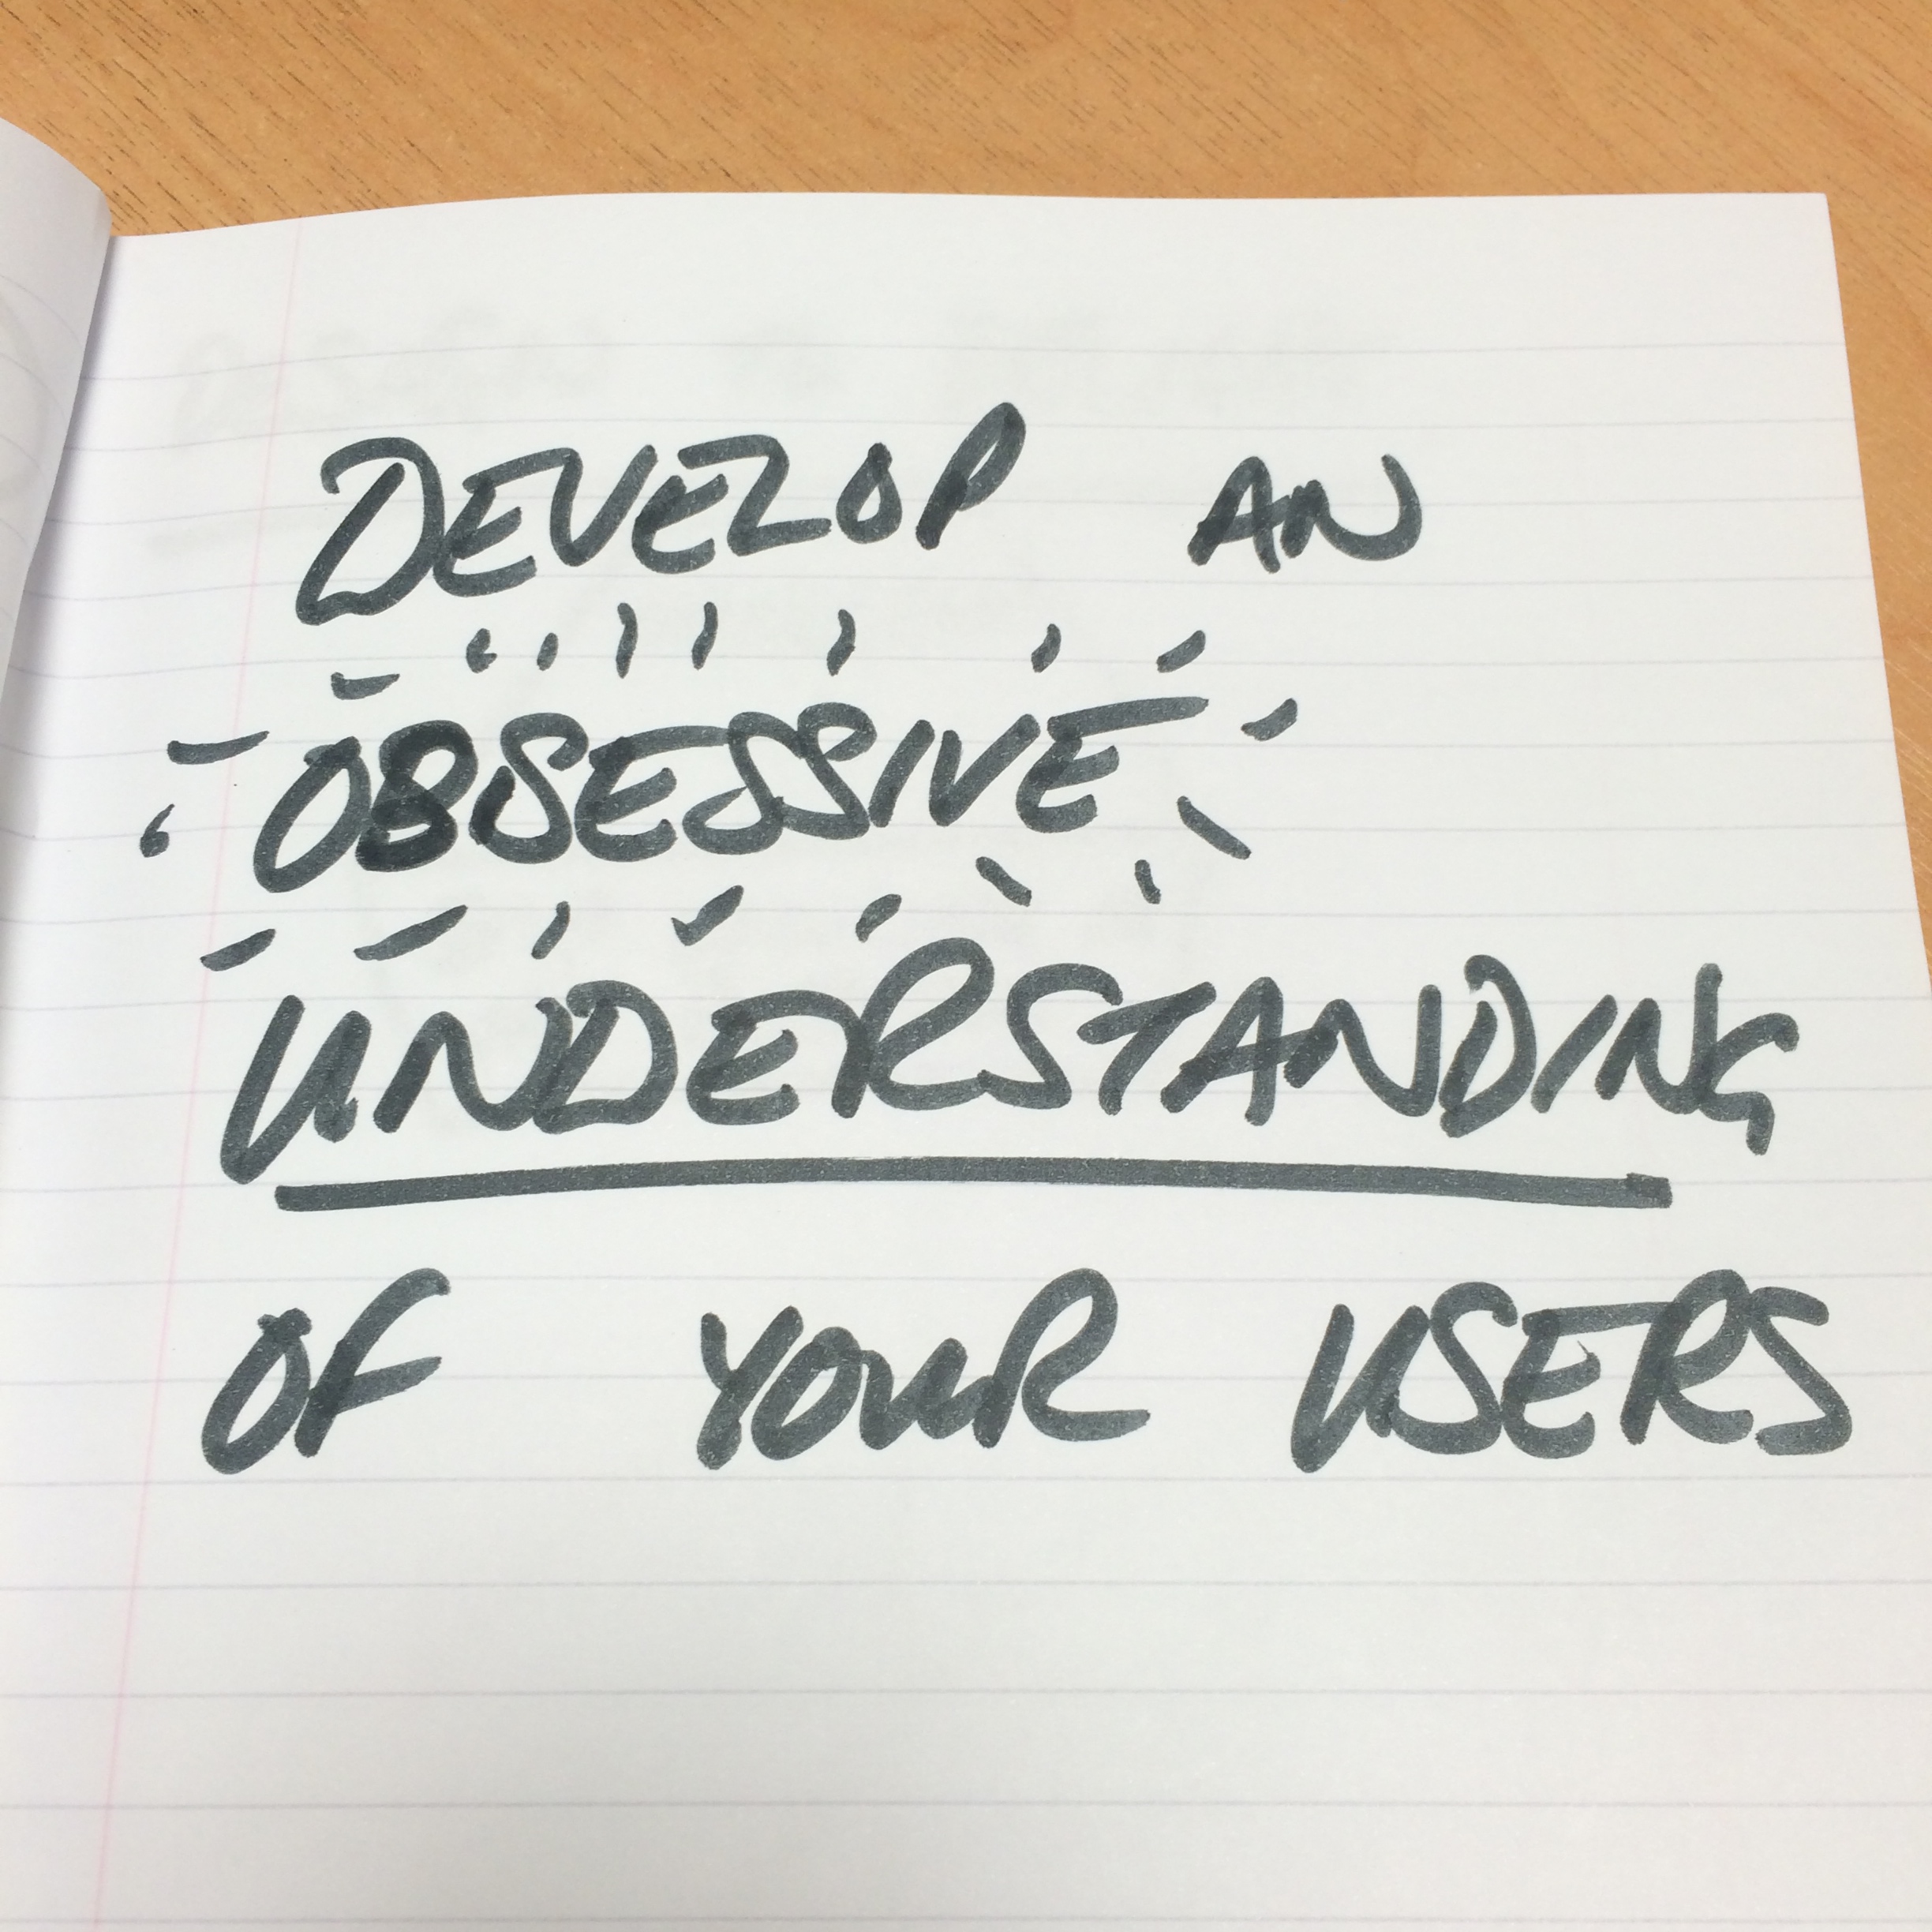 DEVELOP AN
OBSESSIVE
UNDERSTANDING
OF YOUR USERS